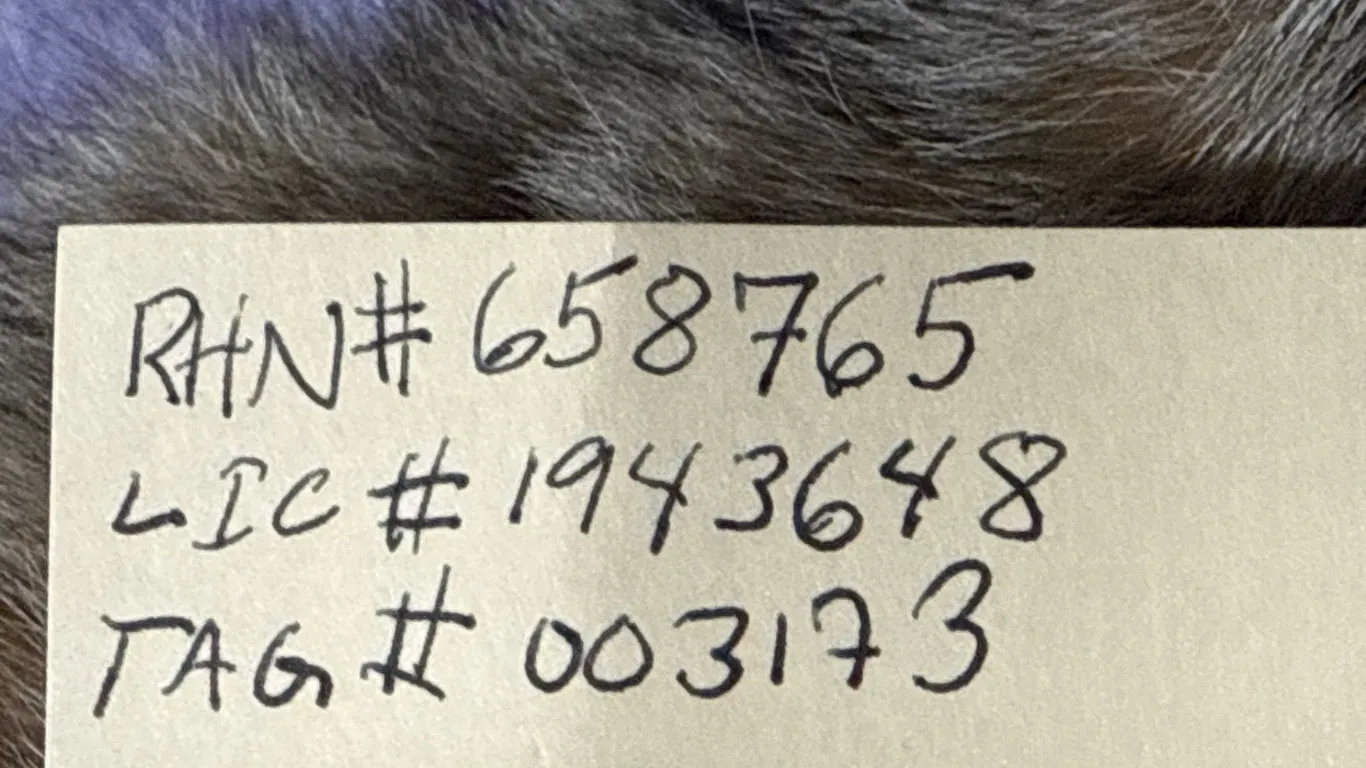 RHN# 658765
LIC # 1943648
TAG # 003173